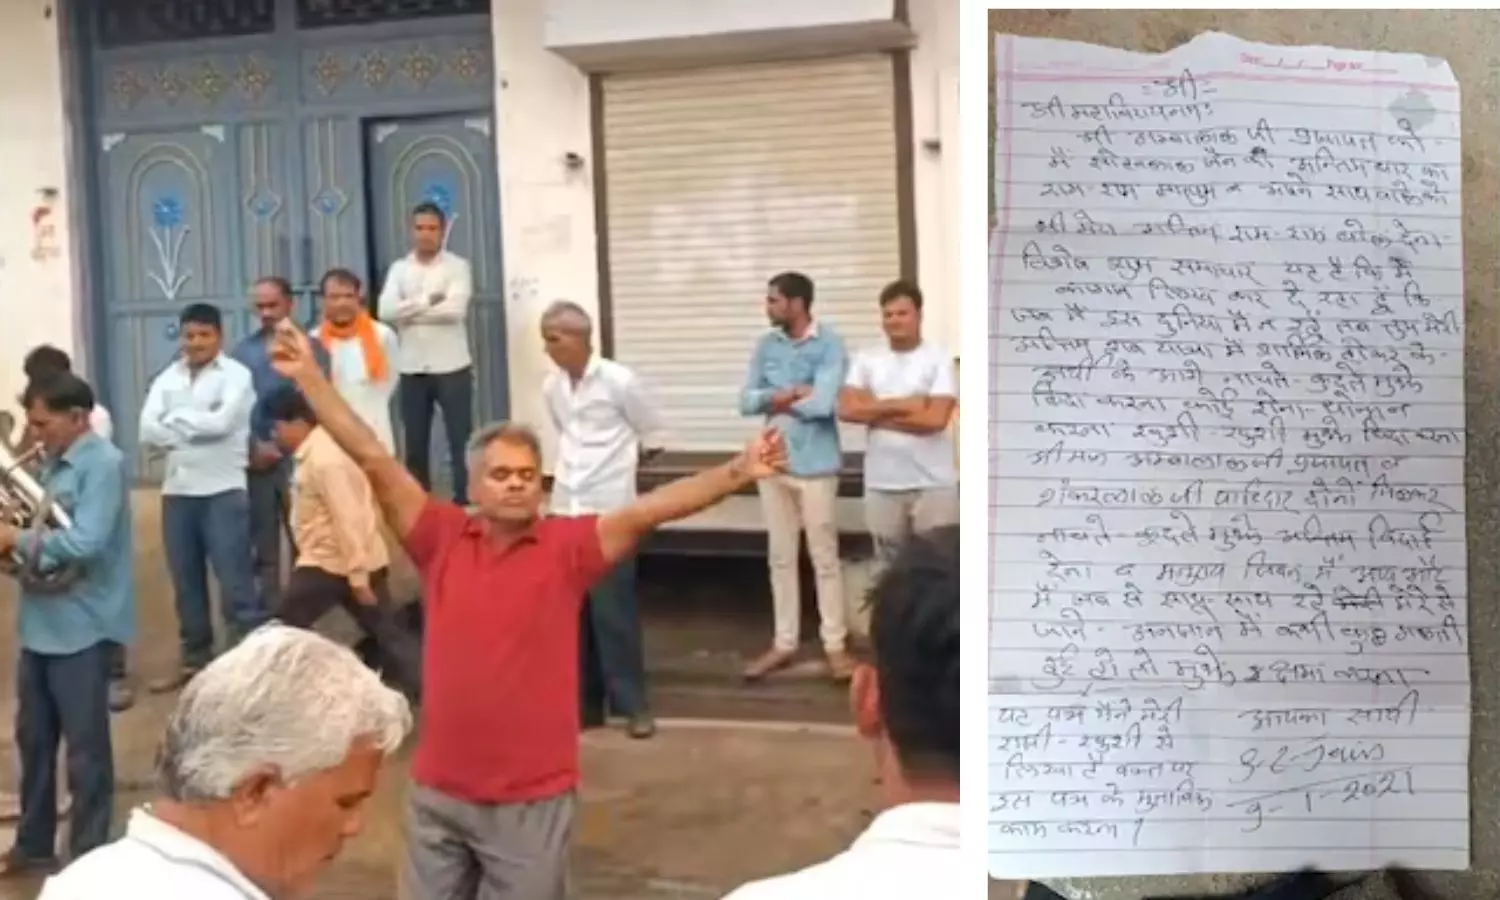 =श्री=
श्री महावीरायनमः
श्री अम्बालाल जी प्रजापत को
मैं सोहनलाल जैन की अन्तिम बार का
राम-राम मालूम व अपने साथ वाले को
भी मेरा अन्तिम राम-राम बोल देना
विशेष शुभ समाचार यह है कि मैं
कागज लिख कर दे रहा हूँ कि
जब मैं इस दुनिया में न रहूँ तब तुम मेरी
अन्तिम शव यात्रा में शामिल होकर के
अर्थी के आगे नाचते-कुदते मुझे
विदा करना कोई रोना-धोना न
करना खुशी-खुशी मुझे विदा करना
श्रीमान अम्बालाल जी प्रजापत व
शंकरलाल जी पाटिदार दोनों मिलकर
नाचते-कुदते मुझे अन्तिम विदाई
देना व मनुष्य जिवन में आप और
मैं जब से साथ-साथ रहे मेरे से
जाने-अनजाने में कभी कुछ गलती
हुई हो तो मुझे क्षमा करना
यह पत्र मैंने मेरी
राजी-खुशी से
लिखा है वक्त पर
इस पत्र के मुताबिक
काम करना।
आपका साथी
S.L. Jain
9-1-2021